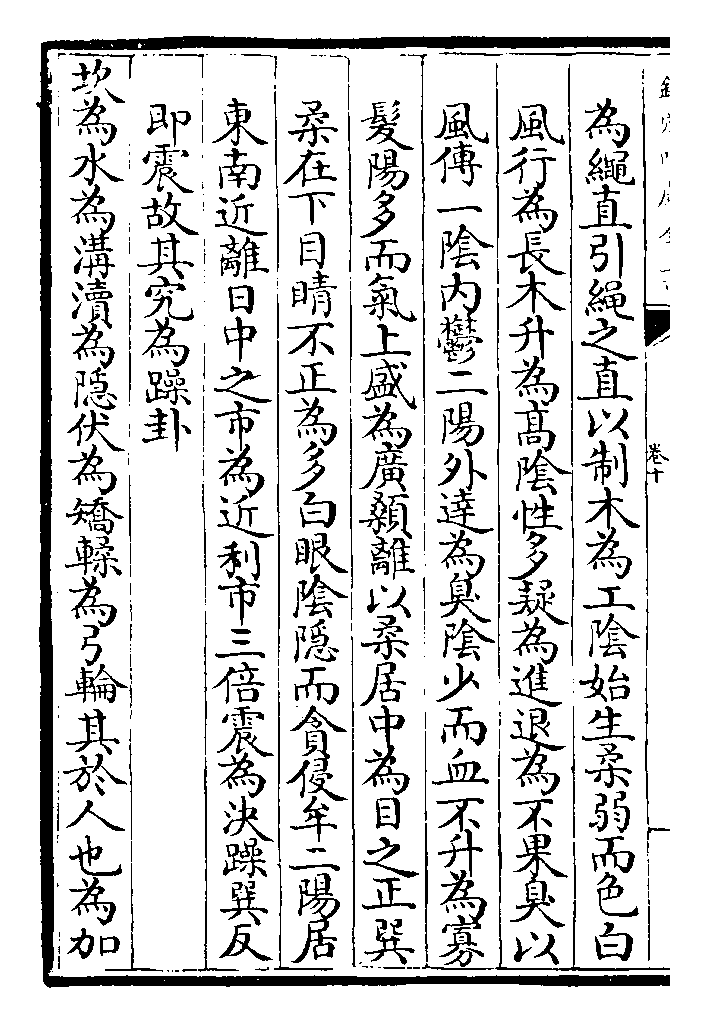 為繩直引繩之直以制木為工陰始生柔弱而色白
風行為長木升為髙陰性多疑為進退為不果臭以
風傳一陰内鬱二陽外達為臭陰少而血不升為寡
髮陽多而氣上盛為廣顙離以柔居中為目之正巽
柔在下目睛不正為多白眼陰隠而貪侵牟二陽居
東南近離日中之市為近利市三倍震為決躁巽反
即震故其究為躁卦
坎為水為溝瀆為隠伏為矯輮為弓輪其於人也為加
卷十